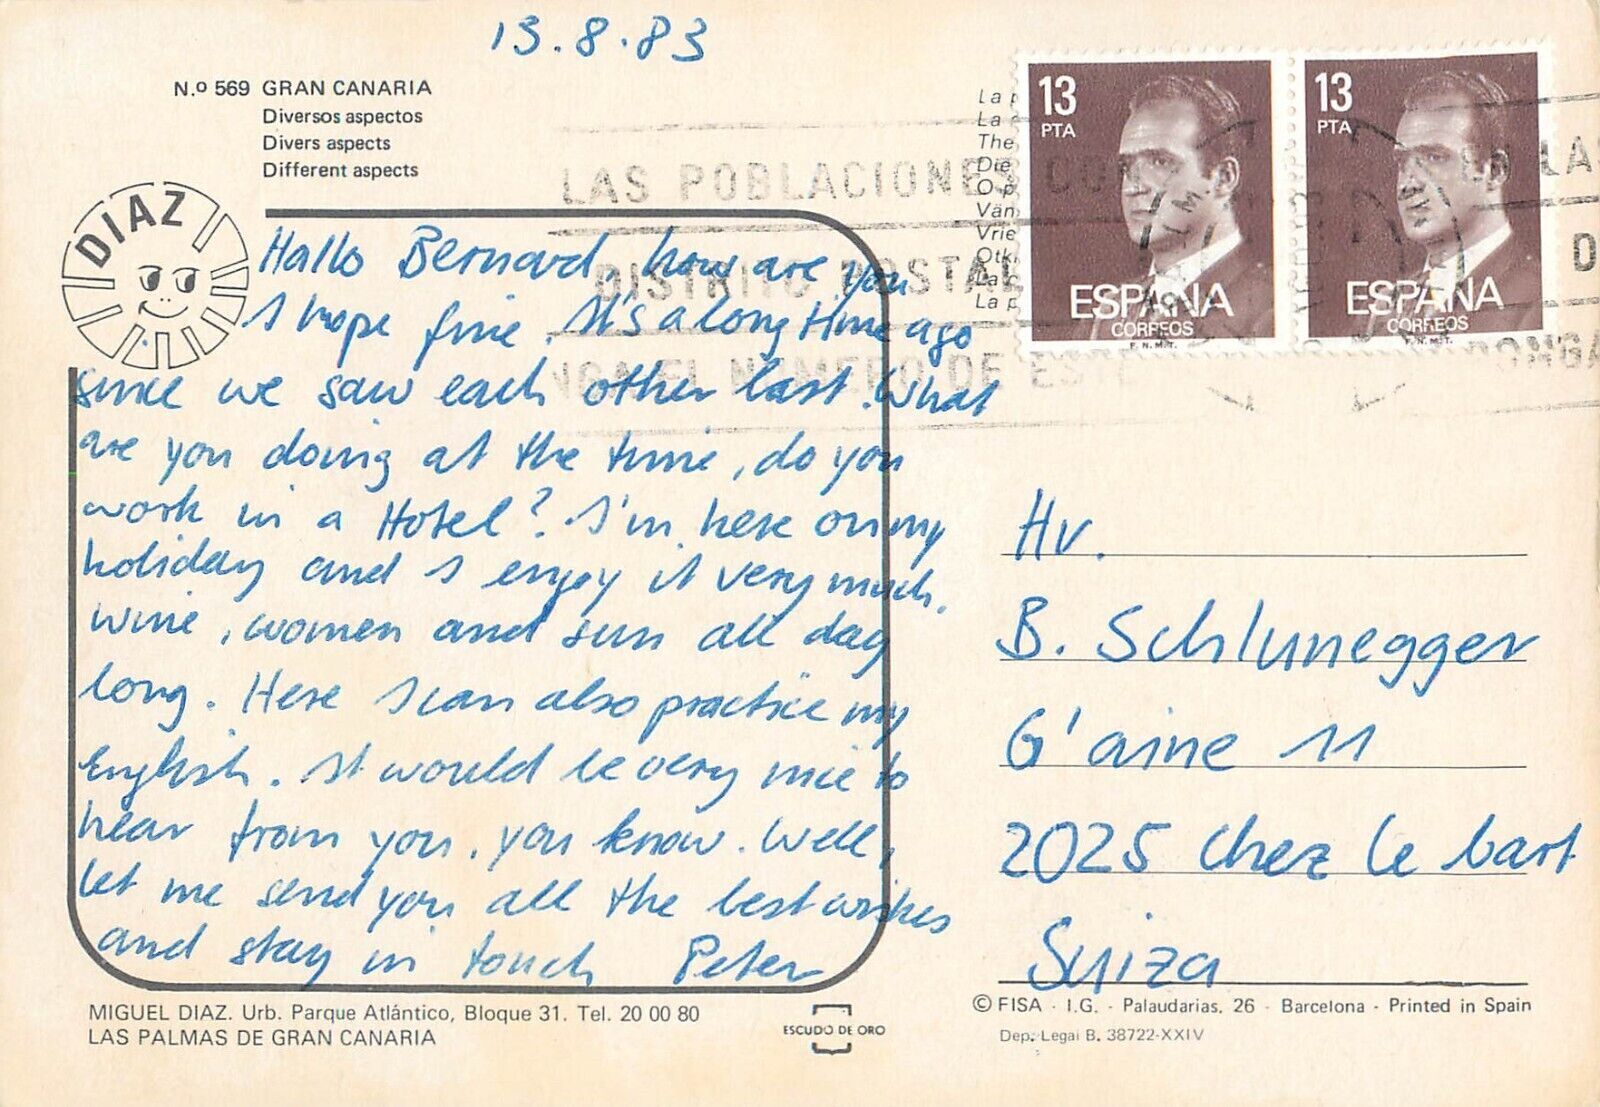 13.8.83
N.º 569 GRAN CANARIA
Diversos aspectos
Divers aspects
Different aspects
DIAZ
Hallo Bernard, how are you
I hope fine. It's a long time ago
since we saw each other last. What
are you doing at the time, do you
work in a Hotel? I'm here on my
holiday and I enjoy it very much.
Wine, women and sun all day
long. Here I can also practice my
English. It would be very nice to
hear from you, you know. Well,
let me send you all the best wishes
and stay in touch Peter
MIGUEL DIAZ. Urb. Parque Atlántico, Bloque 31. Tel. 20 00 80
LAS PALMAS DE GRAN CANARIA
ESCUDO DE ORO
La
La
The
Die
Vrie
La
La
13
PTA
ESPAÑA
CORREOS
F.N.M.T.
13
PTA
ESPAÑA
CORREOS
F.N.M.T.
LAS POBLACIONES CON
DISTRITO POSTAL
NGA EL NUMERO DE ESTE
EN LAS
D
PONGA
Hr.
B. Schlunegger
G'aine 11
2025 Chez le bart
Suiza
© FISA · I.G. - Palaudarias, 26 - Barcelona - Printed in Spain
Dep. Legal B. 38722-XXIV